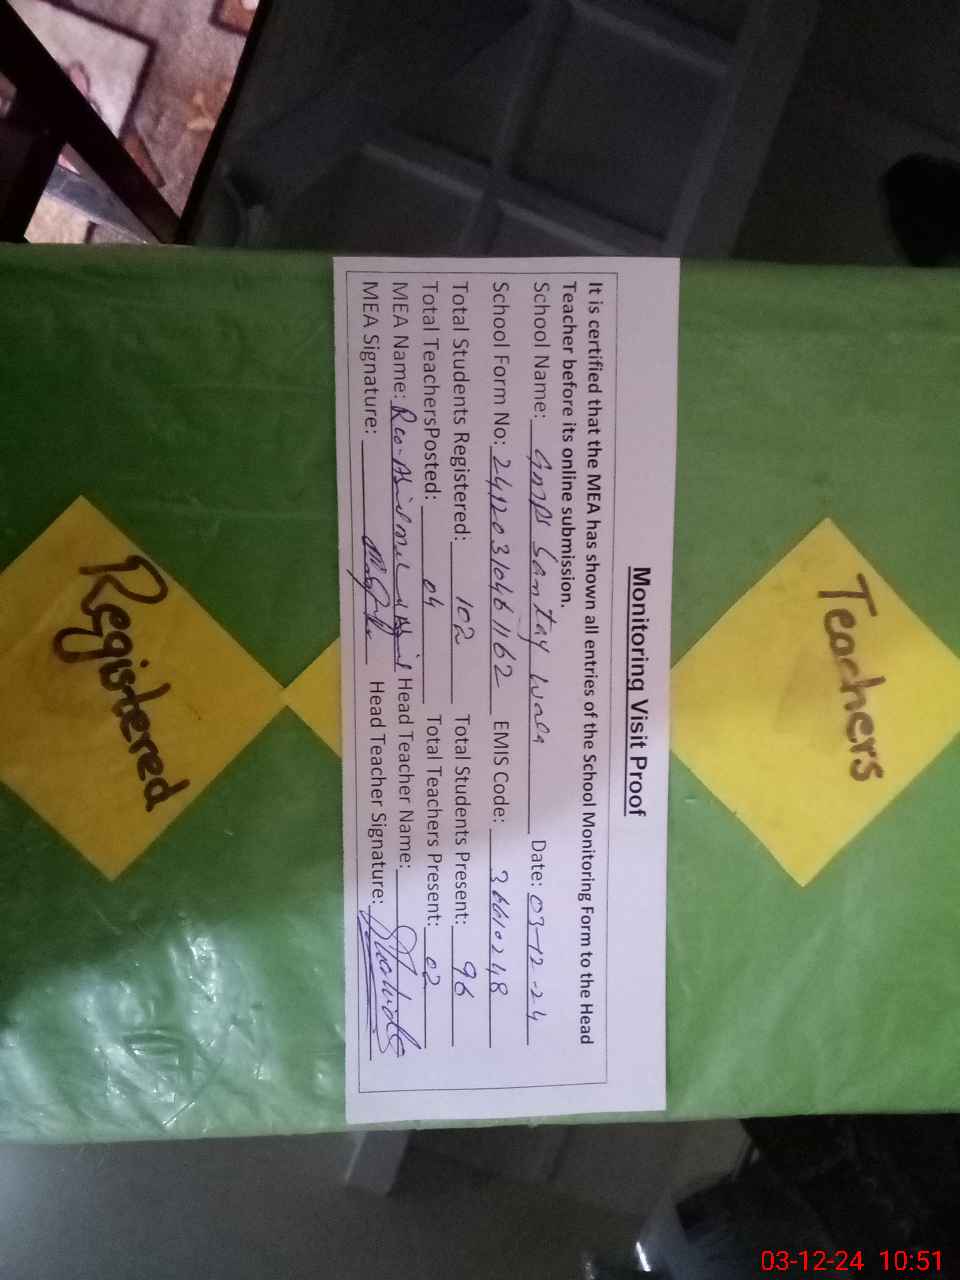 Teachers
Monitoring Visit Proof
It is certified that the MEA has shown all entries of the School Monitoring Form to the Head
Teacher before its online submission.
School Name: GMPS Santay Wala Date: 03-12-24
School Form No: 24120310461162 EMIS Code: 36610248
Total Students Registered: 102 Total Students Present: 96
Total TeachersPosted: 04 Total Teachers Present: 02
MEA Name: Head Teacher Name:
MEA Signature: Head Teacher Signature:
Registered
03-12-24 10:51